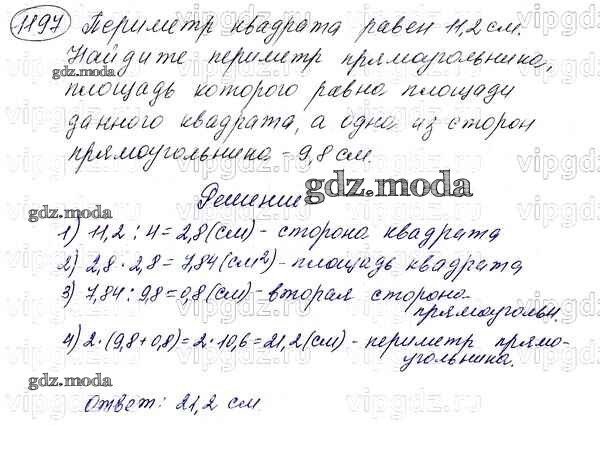 1197) Периметр квадрата равен 11,2 см.
Найдите периметр прямоугольника,
площадь которого равна площади
данного квадрата, а одна из сторон
прямоугольника - 9,8 см.
Решение
1) 11,2 : 4 = 2,8 (см) - сторона квадрата
2) 2,8 · 2,8 = 7,84 (см²) - площадь квадрата
3) 7,84 : 9,8 = 0,8 (см) - вторая сторона
прямоугольн.
4) 2 · (9,8 + 0,8) = 2 · 10,6 = 21,2 (см) - периметр прямо-
угольника.
Ответ: 21,2 см
gdz.moda
gdz.moda
gdz.moda
gdz.moda
gdz.moda
vipgdz.ru